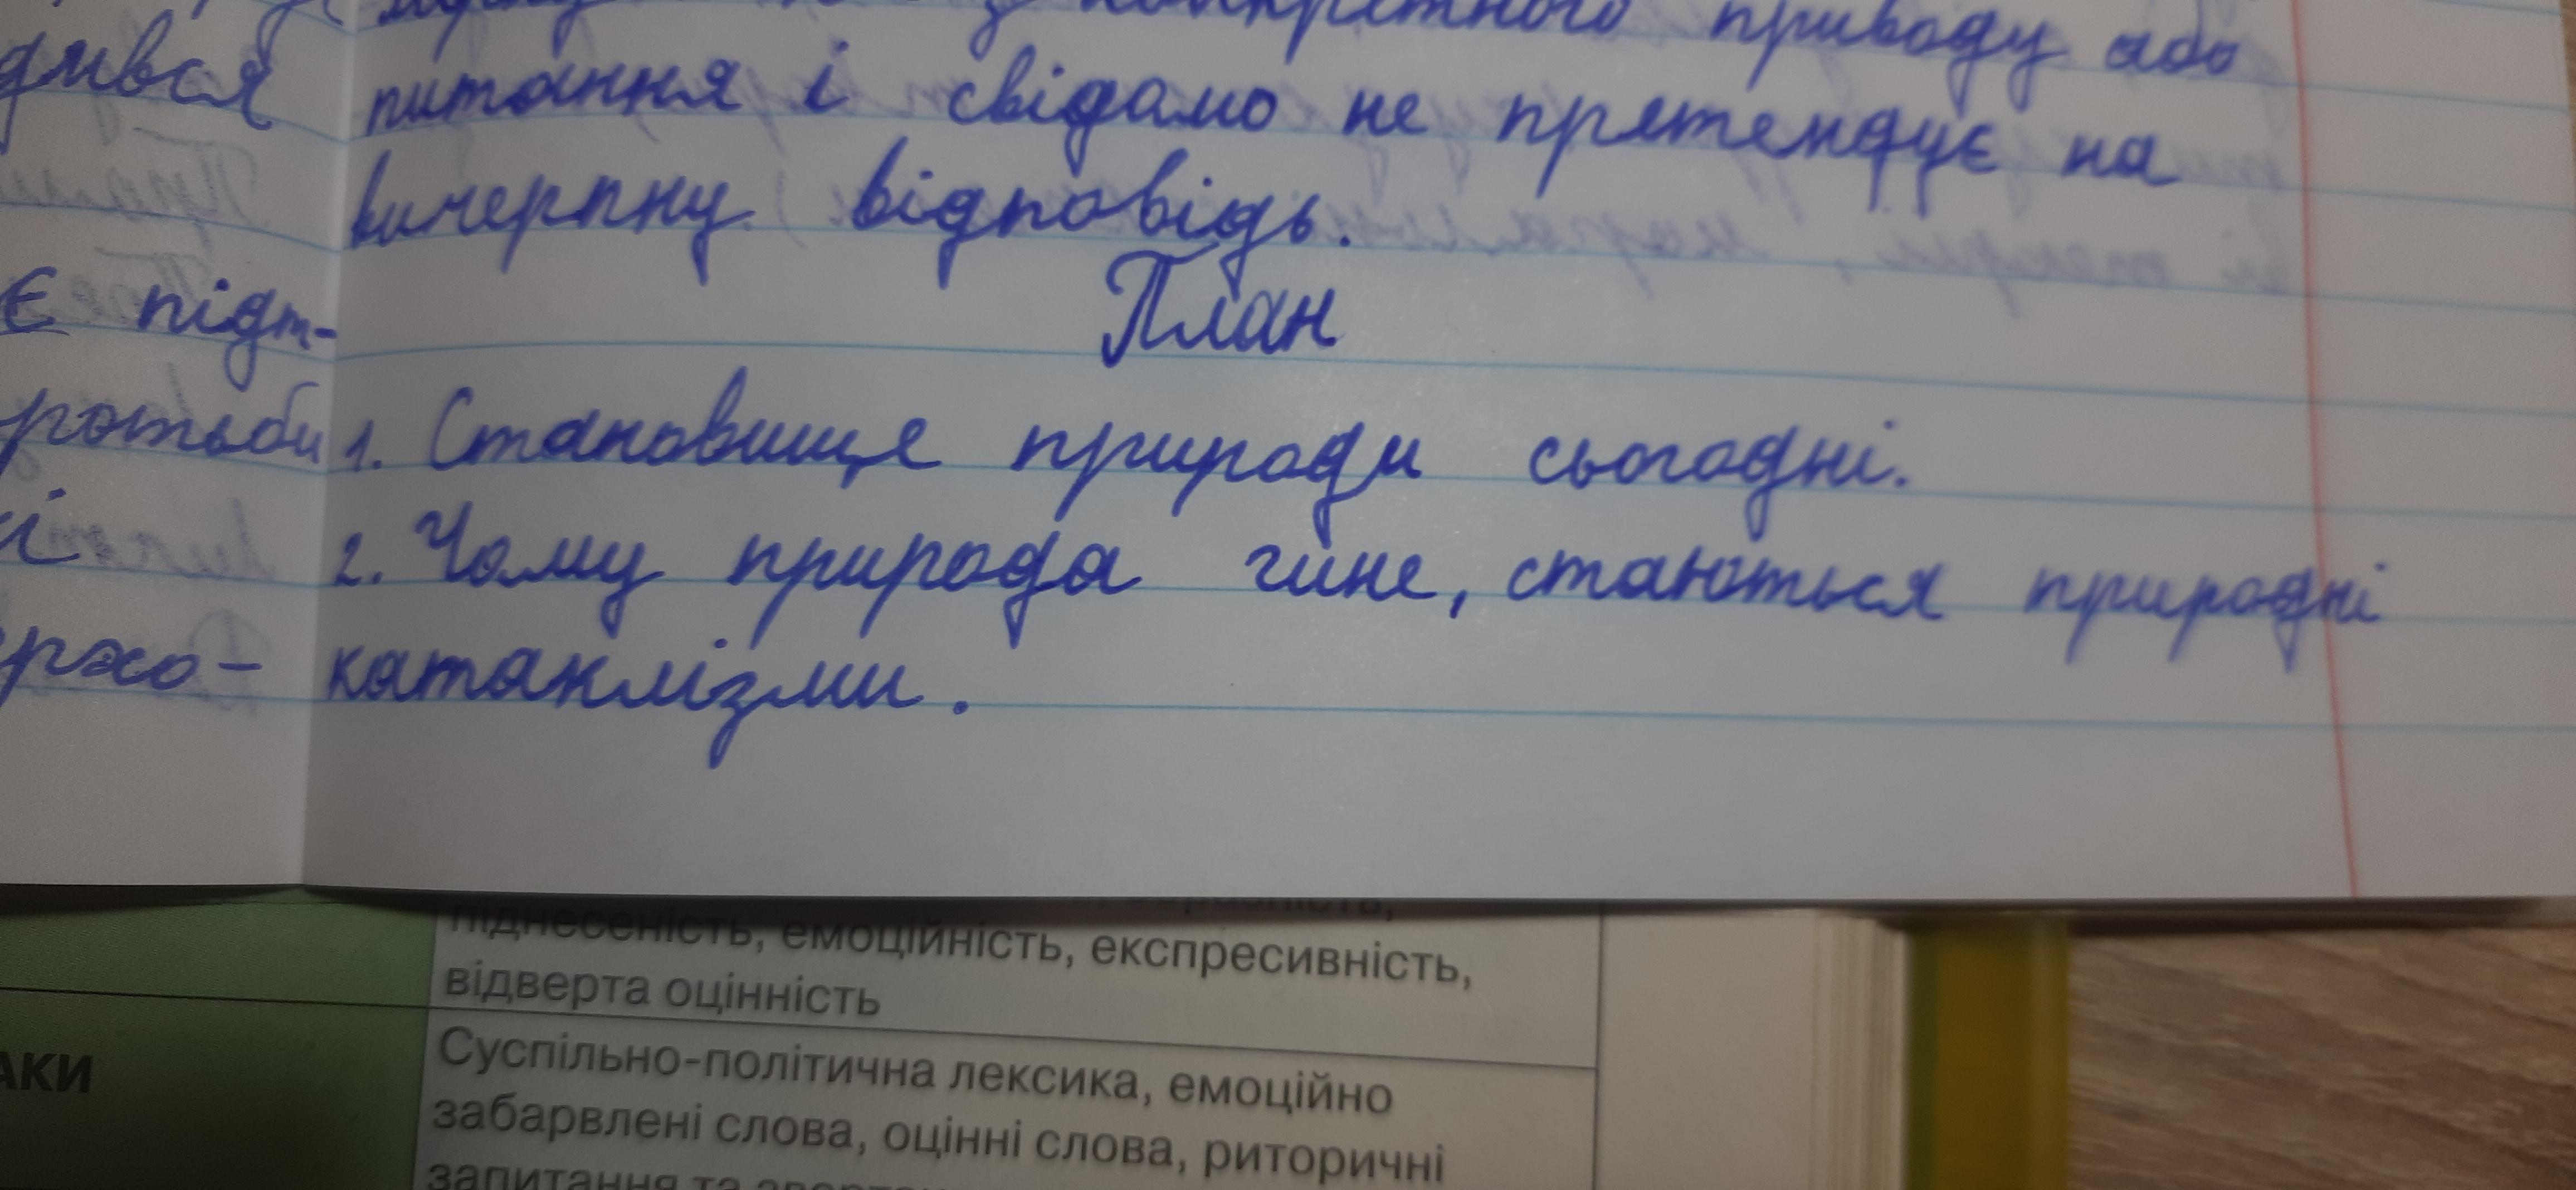 дився
є підт-
ротьби
і
ржо-
з конкретного приводу або
питання і свідамо не претендує на
вичерпну відповідь.
План
1. Становище природи сьогодні.
2. Чому природа гине, стаються природні
катаклізми.
піднесеність, емоційність, експресивність,
відверта оцінність
АКИ
Суспільно-політична лексика, емоційно
забарвлені слова, оцінні слова, риторичні
запитання та